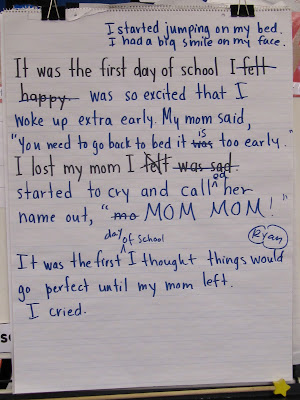 I started jumping on my bed.
I had a big smile on my face.
It was the first day of school I felt
happy. was so excited that I
woke up extra early. My mom said,
"You need to go back to bed it is too early."
I lost my mom I felt was sad.
started to cry and called her
name out, "mo MOM MOM!"
Ryan
day of school
It was the first I thought things would
go perfect until my mom left.
I cried.